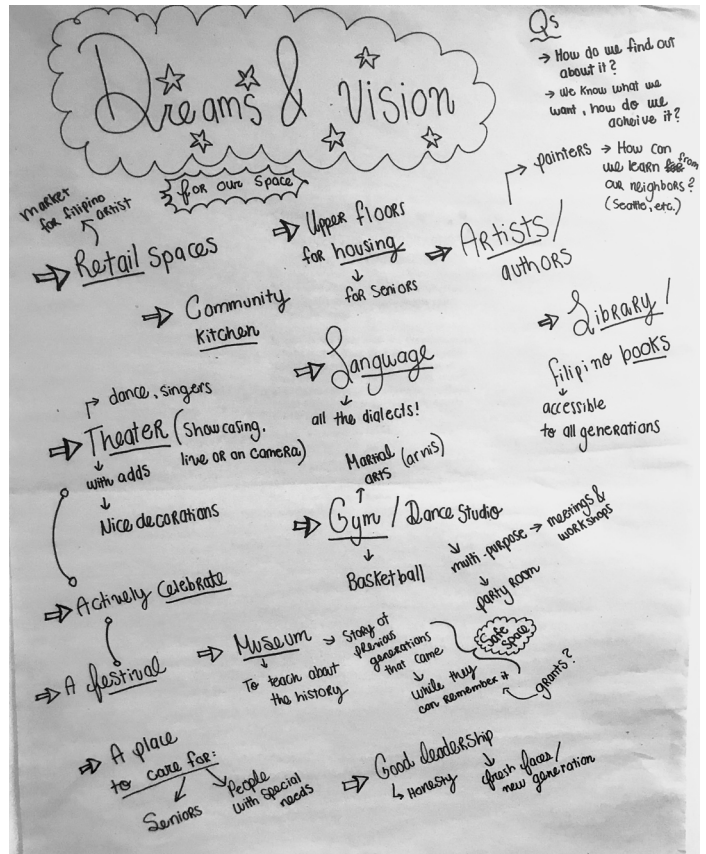 Dreams & Vision
for our space
Qs
→ How do we find out
about it?
→ We know what we
want, how do we
acheive it?
→ How can
we learn from
our neighbors?
(Seattle, etc.)
market
for filipino
artist
Retail Spaces
Upper floors
for housing
for seniors
painters
Artists/
authors
Community
Kitchen
Library/
filipino books
accessible
to all generations
Language
all the dialects!
dance, singers
Theater (Showcasing,
live or on camera)
with adds
Nice decorations
Martial
arts (arnis)
Gym / Dance Studio
Basketball
multi-purpose → meetings &
workshops
party room
Safe
Space
Actively Celebrate
A festival
Museum
To teach about
the history
Story of
previous
generations
that came
while they
can remember it
grants?
A place
to care for:
Seniors
People
with special
needs
Good leadership
Honesty
fresh faces/
new generation